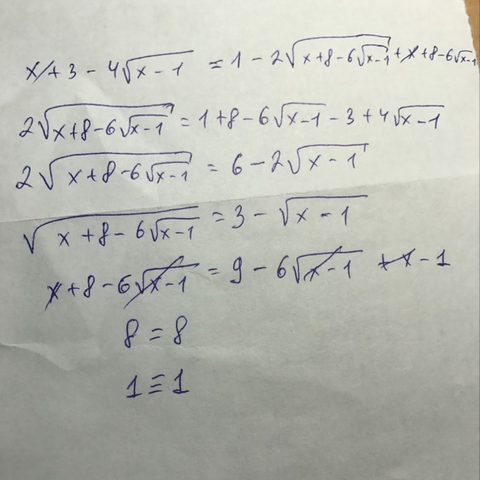 x + 3 - 4√(x - 1) = 1 - 2√(x+8-6√(x-1)) + x + 8 - 6√(x-1)
2√(x+8-6√(x-1)) = 1+8-6√(x-1) - 3 + 4√(x-1)
2√(x+8-6√(x-1)) = 6 - 2√(x-1)
√(x+8-6√(x-1)) = 3 - √(x-1)
x+8-6√(x-1) = 9 - 6√(x-1) + x - 1
8 = 8
1 ≡ 1